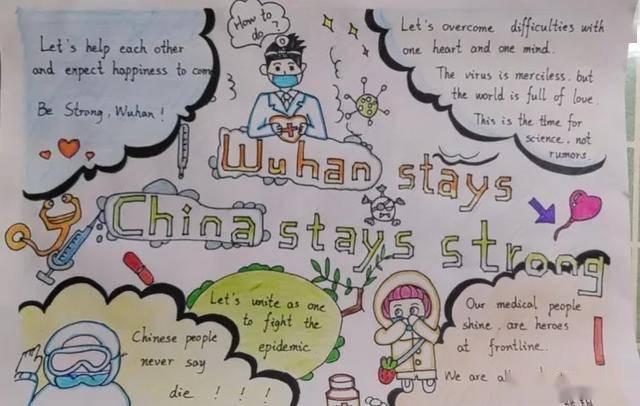 Let's help each other
and expect happiness to com
Be Strong, Wuhan !
How to
do ?
Let's overcome difficulties with
one heart and one mind.
The virus is merciless. but
the world is full of love.
This is the time for
science, not
rumors.
Wuhan stays
China stays strong
Let's unite as one
to fight the
epidemic
Chinese people
never say
die ! ! !
Our medical people
shine. are heroes
at frontline.
We are